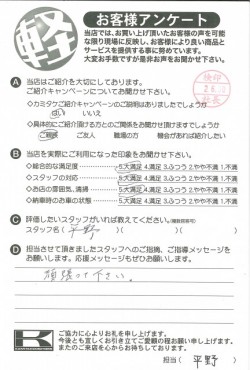 軽
お客様アンケート
当店では、お買い上げ頂いたお客様の声を可能
な限り現場に反映し、お客様により良い商品と
サービスを提供する事に努めています。
大変お手数ですが是非お声をお聞かせ下さい。
検印
社長
A 当店はご紹介を大切にしております。
ご紹介キャンペーンについてお聞かせ下さい。
◇カミタケご紹介キャンペーンのご説明はありましたでしょうか
はい いいえ
◇具体的にご紹介頂ける方とのご関係をお聞かせ頂けますでしょうか
ご親戚 ご友人 職場の方 機会があれば紹介したい
B 当店を実際にご利用になった印象をお聞かせ下さい。
◇総合的な満足度 5.大満足 4.満足 3.ふつう 2.やや不満 1.不満
◇スタッフの対応 5.大満足 4.満足 3.ふつう 2.やや不満 1.不満
◇お店の雰囲気、清掃 5.大満足 4.満足 3.ふつう 2.やや不満 1.不満
◇納車時のお車の状態 5.大満足 4.満足 3.ふつう 2.やや不満 1.不満
C 評価したいスタッフがいれば教えてください。(複数回答可)
スタッフ名( 平野 )( )( )
D 担当させて頂きましたスタッフへのご指摘、ご指導メッセージを
お願いします。応援メッセージもぜひお願いします。
頑張って下さい。
K
ご協力に心よりお礼を申し上げます。
今後とも宜しくお引き立てご愛顧の程お願い申し上げます。
またのご来店を心からお待ちしております。
担当( 平野 )